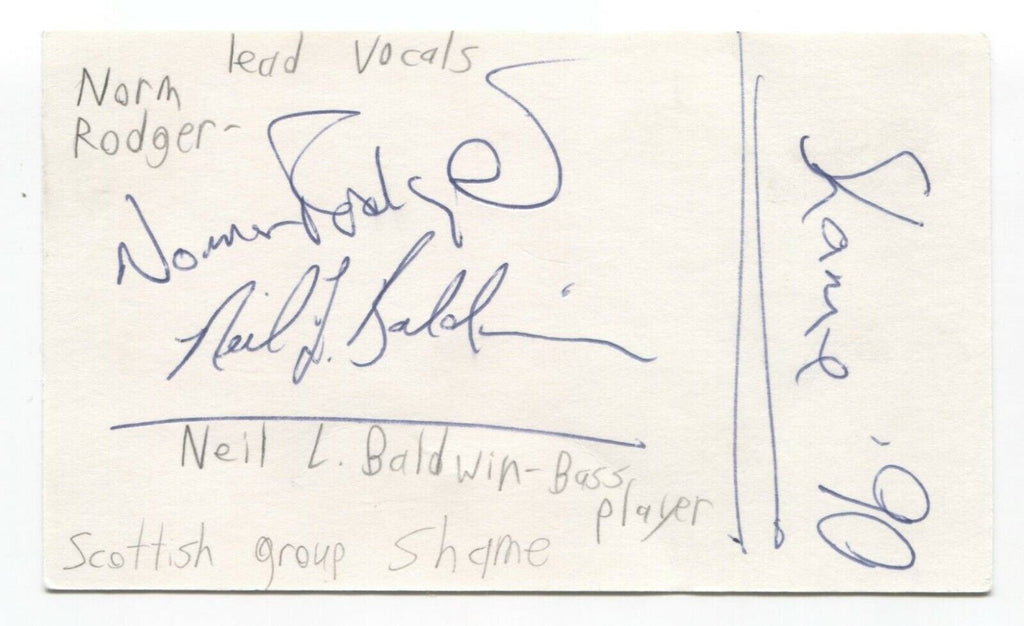 lead vocals
Norm
Rodger-
Norman Rodger
Neil L. Baldwin
Neil L. Baldwin-Bass
player
Scottish group Shame
Shame '90